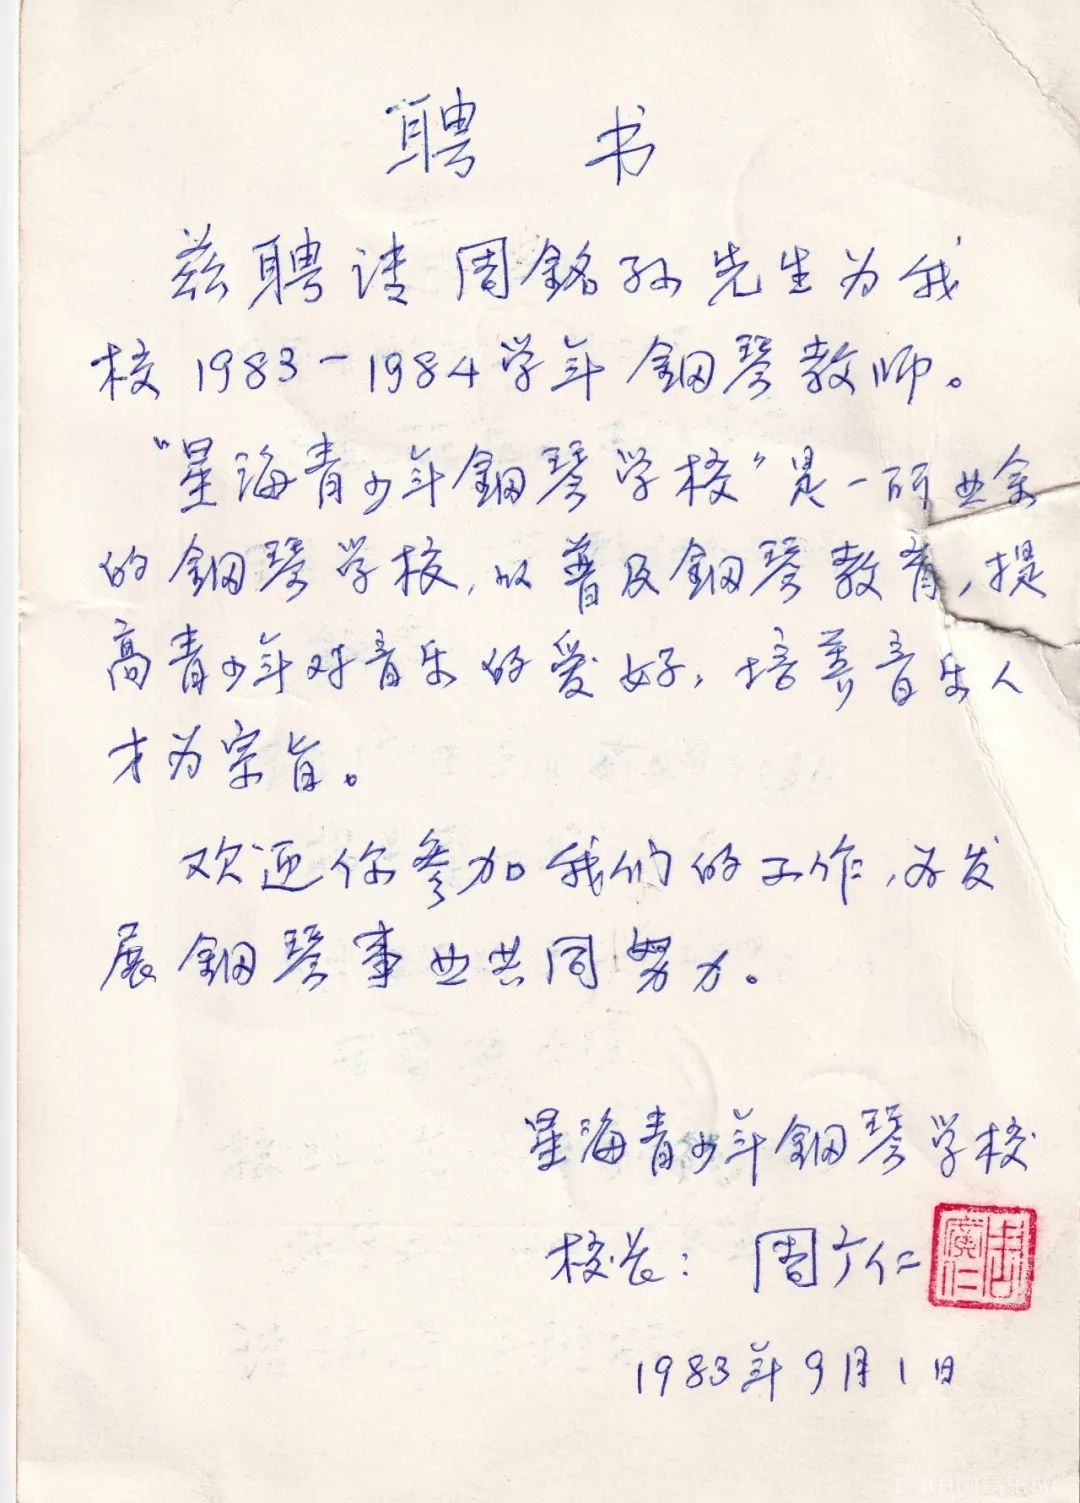 聘 书
兹聘请周銘孙先生为我
校1983-1984学年鋼琴教师。
“星海青少年鋼琴学校”是一所业余
的鋼琴学校,以普及鋼琴教育,提
高青少年对音乐的爱好,培养音乐人
才为宗旨。
欢迎你参加我们的工作,为发
展鋼琴事业共同努力。
星海青少年鋼琴学校
校长:周广仁
周廣仁
1983年9月1日